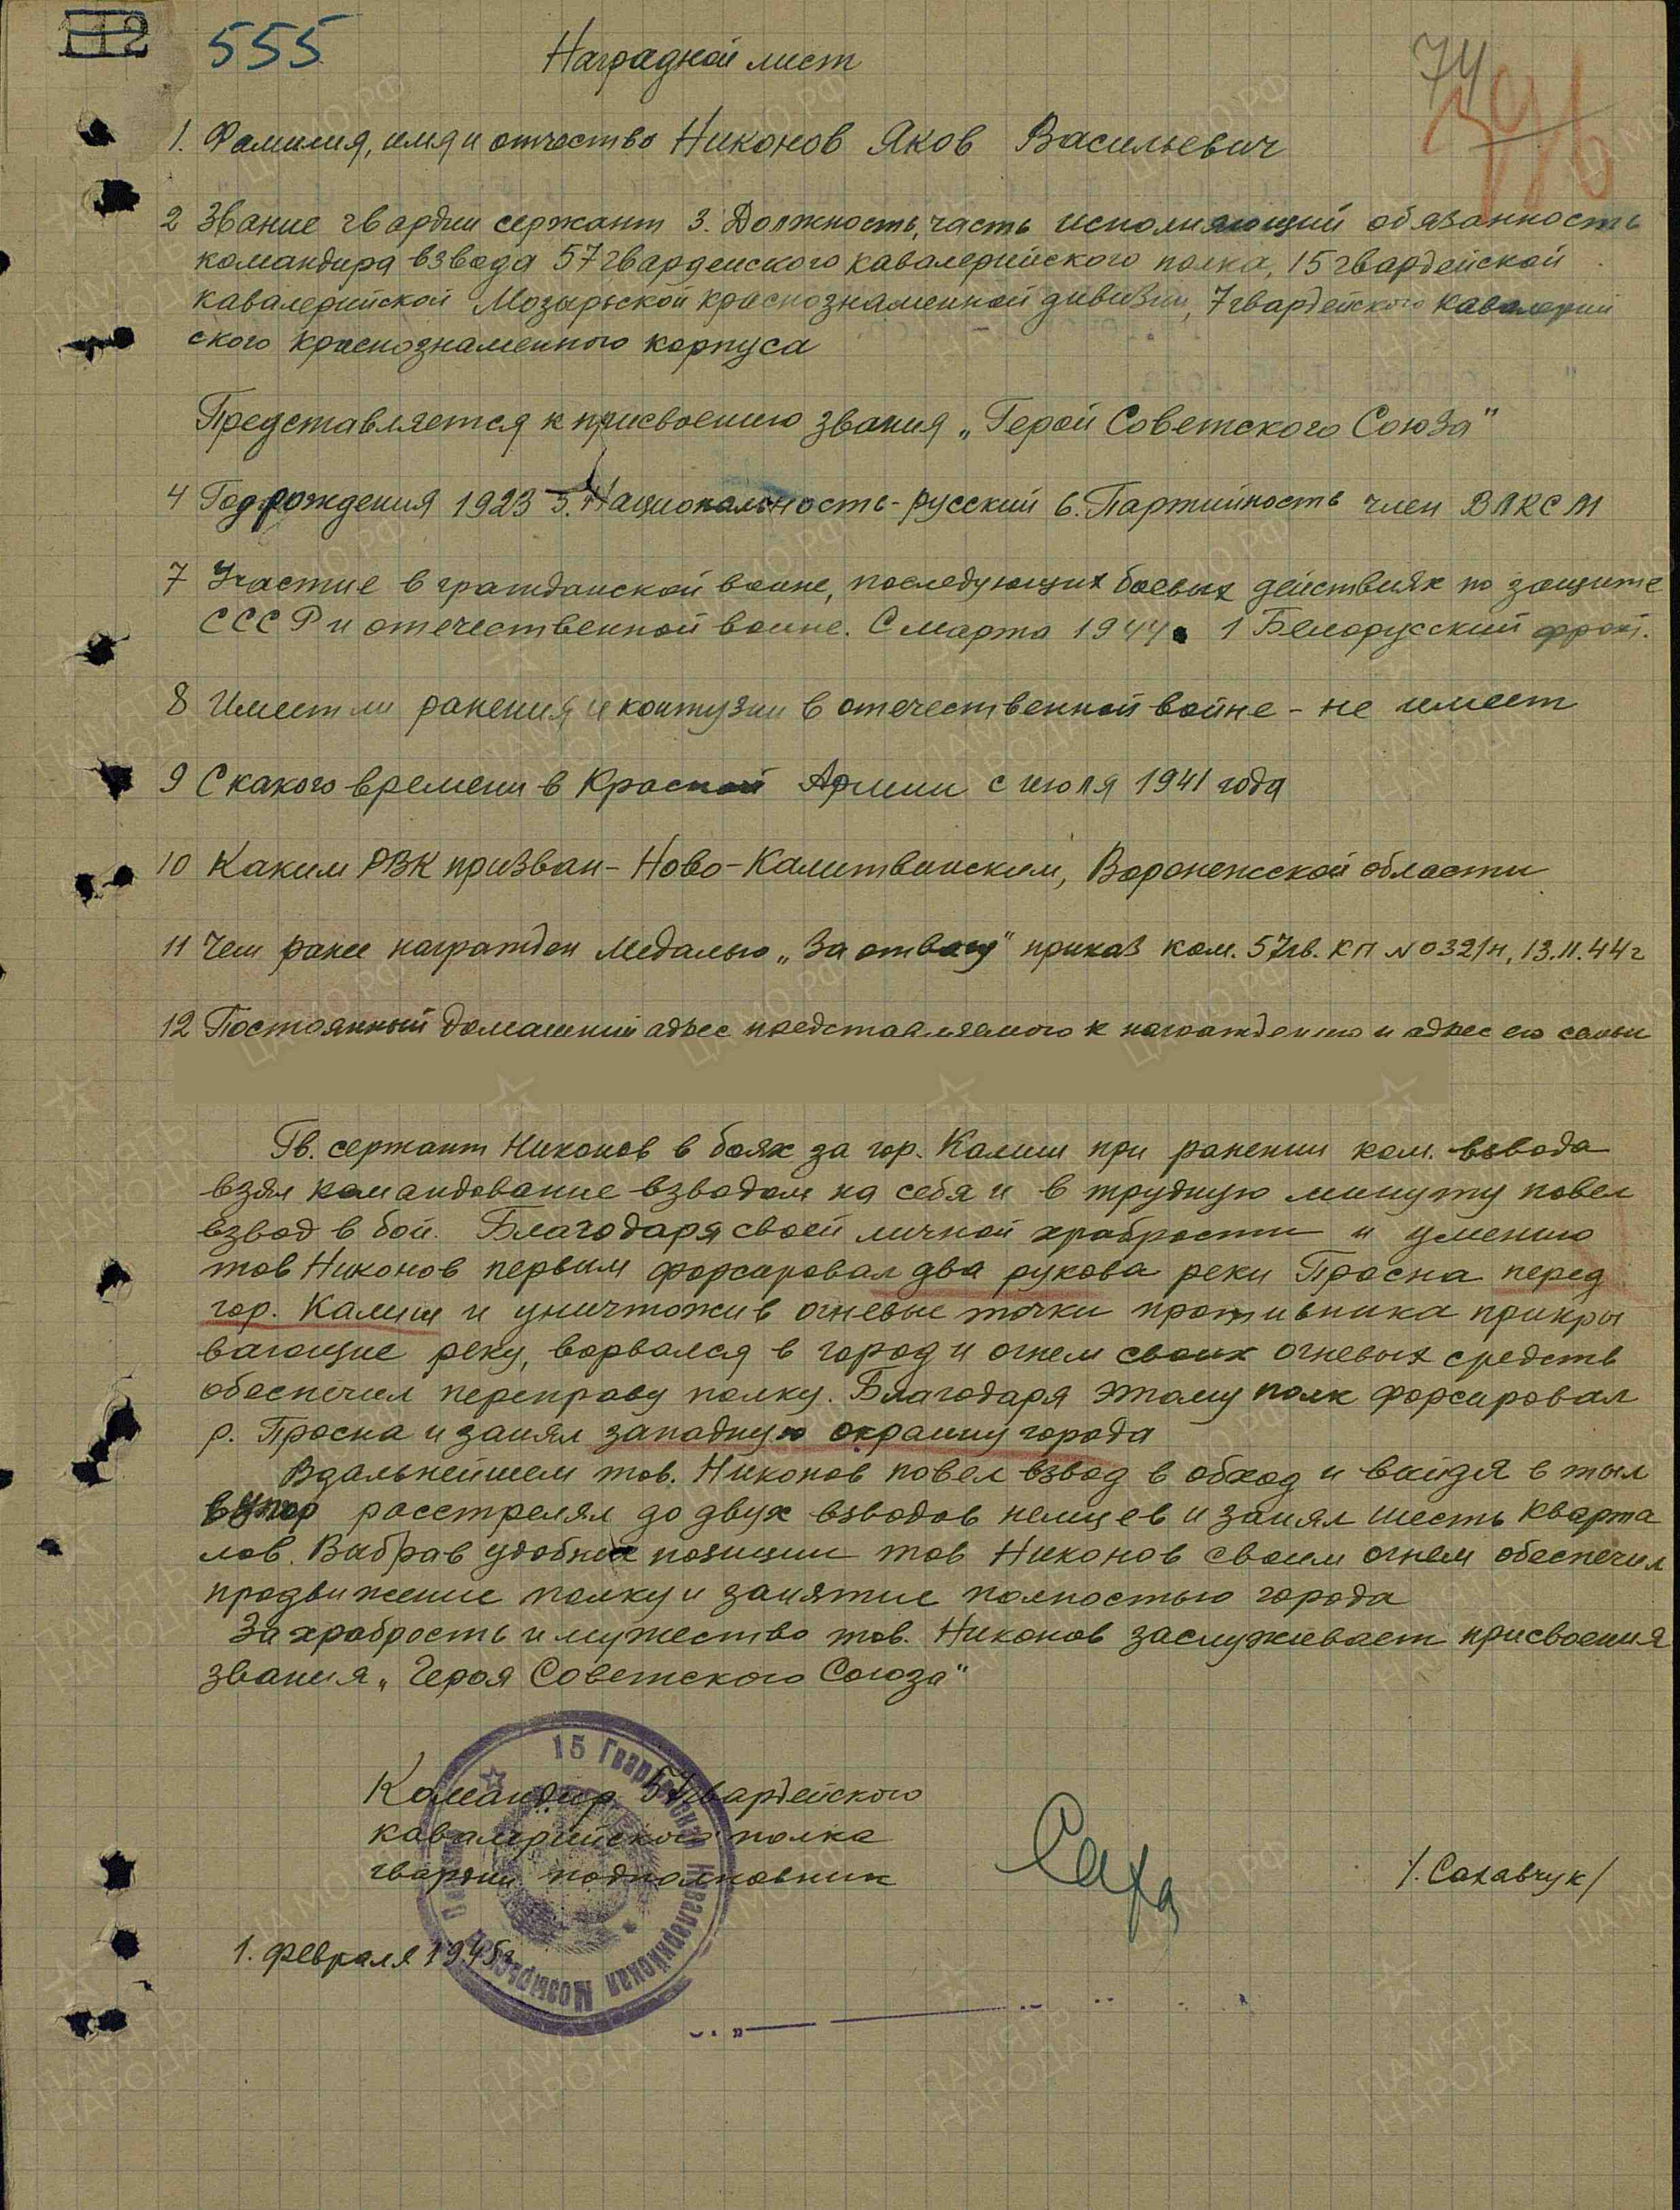 112 555 74
396
Наградной лист
1. Фамилия, имя и отчество Никонов Яков Васильевич
2 Звание гвардии сержант 3. Должность, часть исполняющий обязанность
командира взвода 57 гвардейского кавалерийского полка, 15 гвардейской
кавалерийской Мозырьской краснознаменной дивизии, 7 гвардейского кавалерий
ского краснознаменного корпуса
Представляется к присвоению звания „Герой Советского Союза"
4 Год рождения 1923 5. Национальность - русский 6. Партийность член ВЛКСМ
7 Участие в гражданской войне, последующих боевых действиях по защите
СССР и отечественной войне. С марта 1944. 1 Белорусский фронт.
8 Имеет ли ранения и контузии в отечественной войне - не имеет
9 С какого времени в Красной Армии с июля 1941 года
10 Каким РВК призван - Ново-Калитвинским, Воронежской области
11 Чем ранее награжден Медалью „За отвагу" приказ ком. 57 гв. КП № 0321н, 13.11.44 г
12 Постоянный домашний адрес представляемого к награждению и адрес его семьи
Гв. сержант Никонов в боях за гор. Калиш при ранении ком. взвода
взял командование взводом на себя и в трудную минуту повел
взвод в бой. Благодаря своей личной храбрости и умению
тов Никонов первым форсировал два рукова реки Просна перед
гор. Калиш и уничтожив огневые точки противника прикры
вающие реку, ворвался в город и огнем своих огневых средств
обеспечил переправу полку. Благодаря этому полк форсировал
р. Просна и занял западную окраину города
В дальнейшем тов. Никонов повел взвод в обход и выйдя в тыл
в упор расстрелял до двух взводов немцев и занял шесть кварта
лов. Выбрав удобные позиции тов Никонов своим огнем обеспечил
продвижение полку и занятие полностью города
За храбрость и мужество тов. Никонов заслуживает присвоения
звания „Героя Советского Союза"
Командир 57 гвардейского
кавалерийского полка
гвардии подполковник /.Сахавчук/
1. февраля 1945 г
15 Гвардейская Кавалерийская Мозырьская
ПАМЯТЬ НАРОДА
ЦАМО РФ